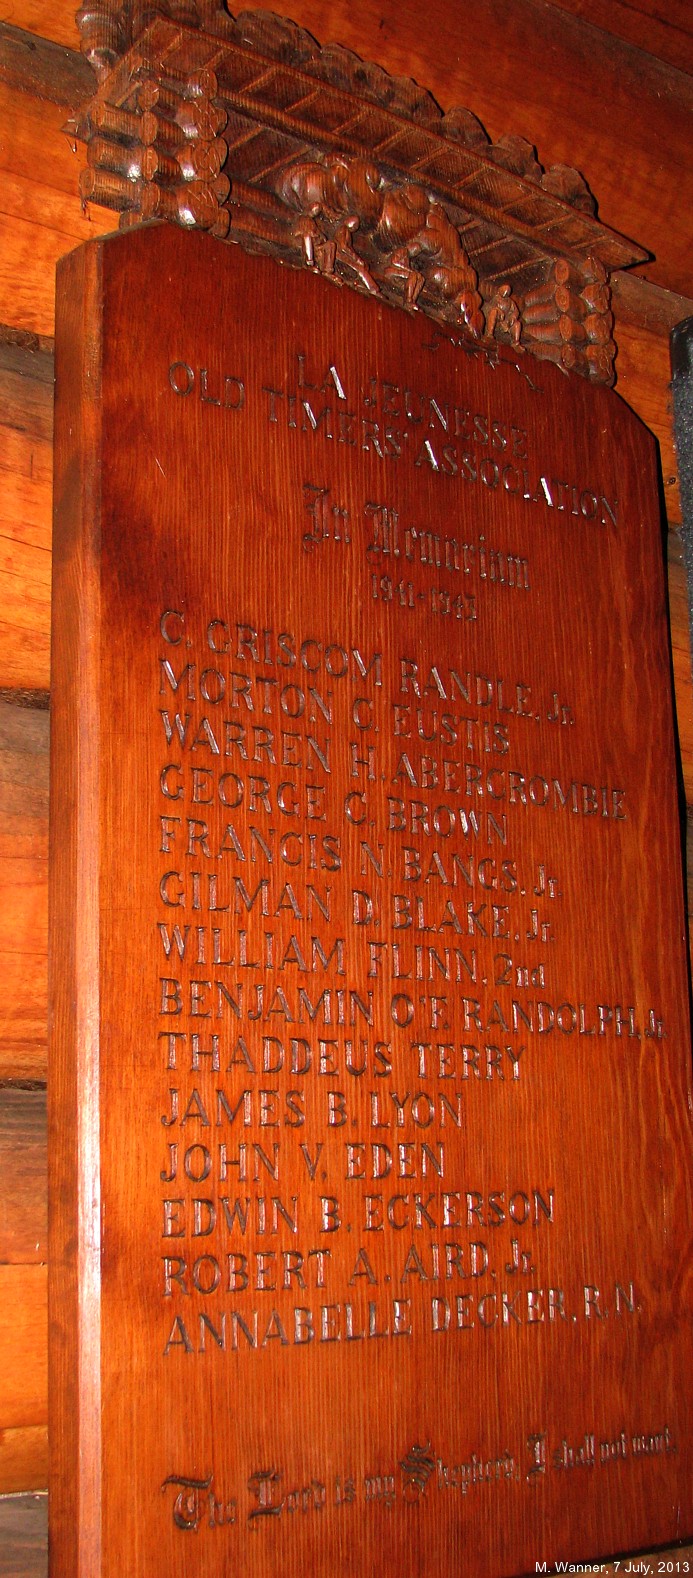 LA JEUNESSE
OLD TIMERS' ASSOCIATION
In Memoriam
1941-1945
C. GRISCOM RANDLE, Jr.
MORTON C. EUSTIS
WARREN H. ABERCROMBIE
GEORGE C. BROWN
FRANCIS N. BANGS, Jr.
GILMAN D. BLAKE, Jr.
WILLIAM FLINN, 2nd
BENJAMIN O'F. RANDOLPH, Jr.
THADDEUS TERRY
JAMES B. LYON
JOHN V. EDEN
EDWIN B. ECKERSON
ROBERT A. AIRD, Jr.
ANNABELLE DECKER, R.N.
The Lord is my Shepherd, I shall not want.
M. Wanner, 7 July, 2013